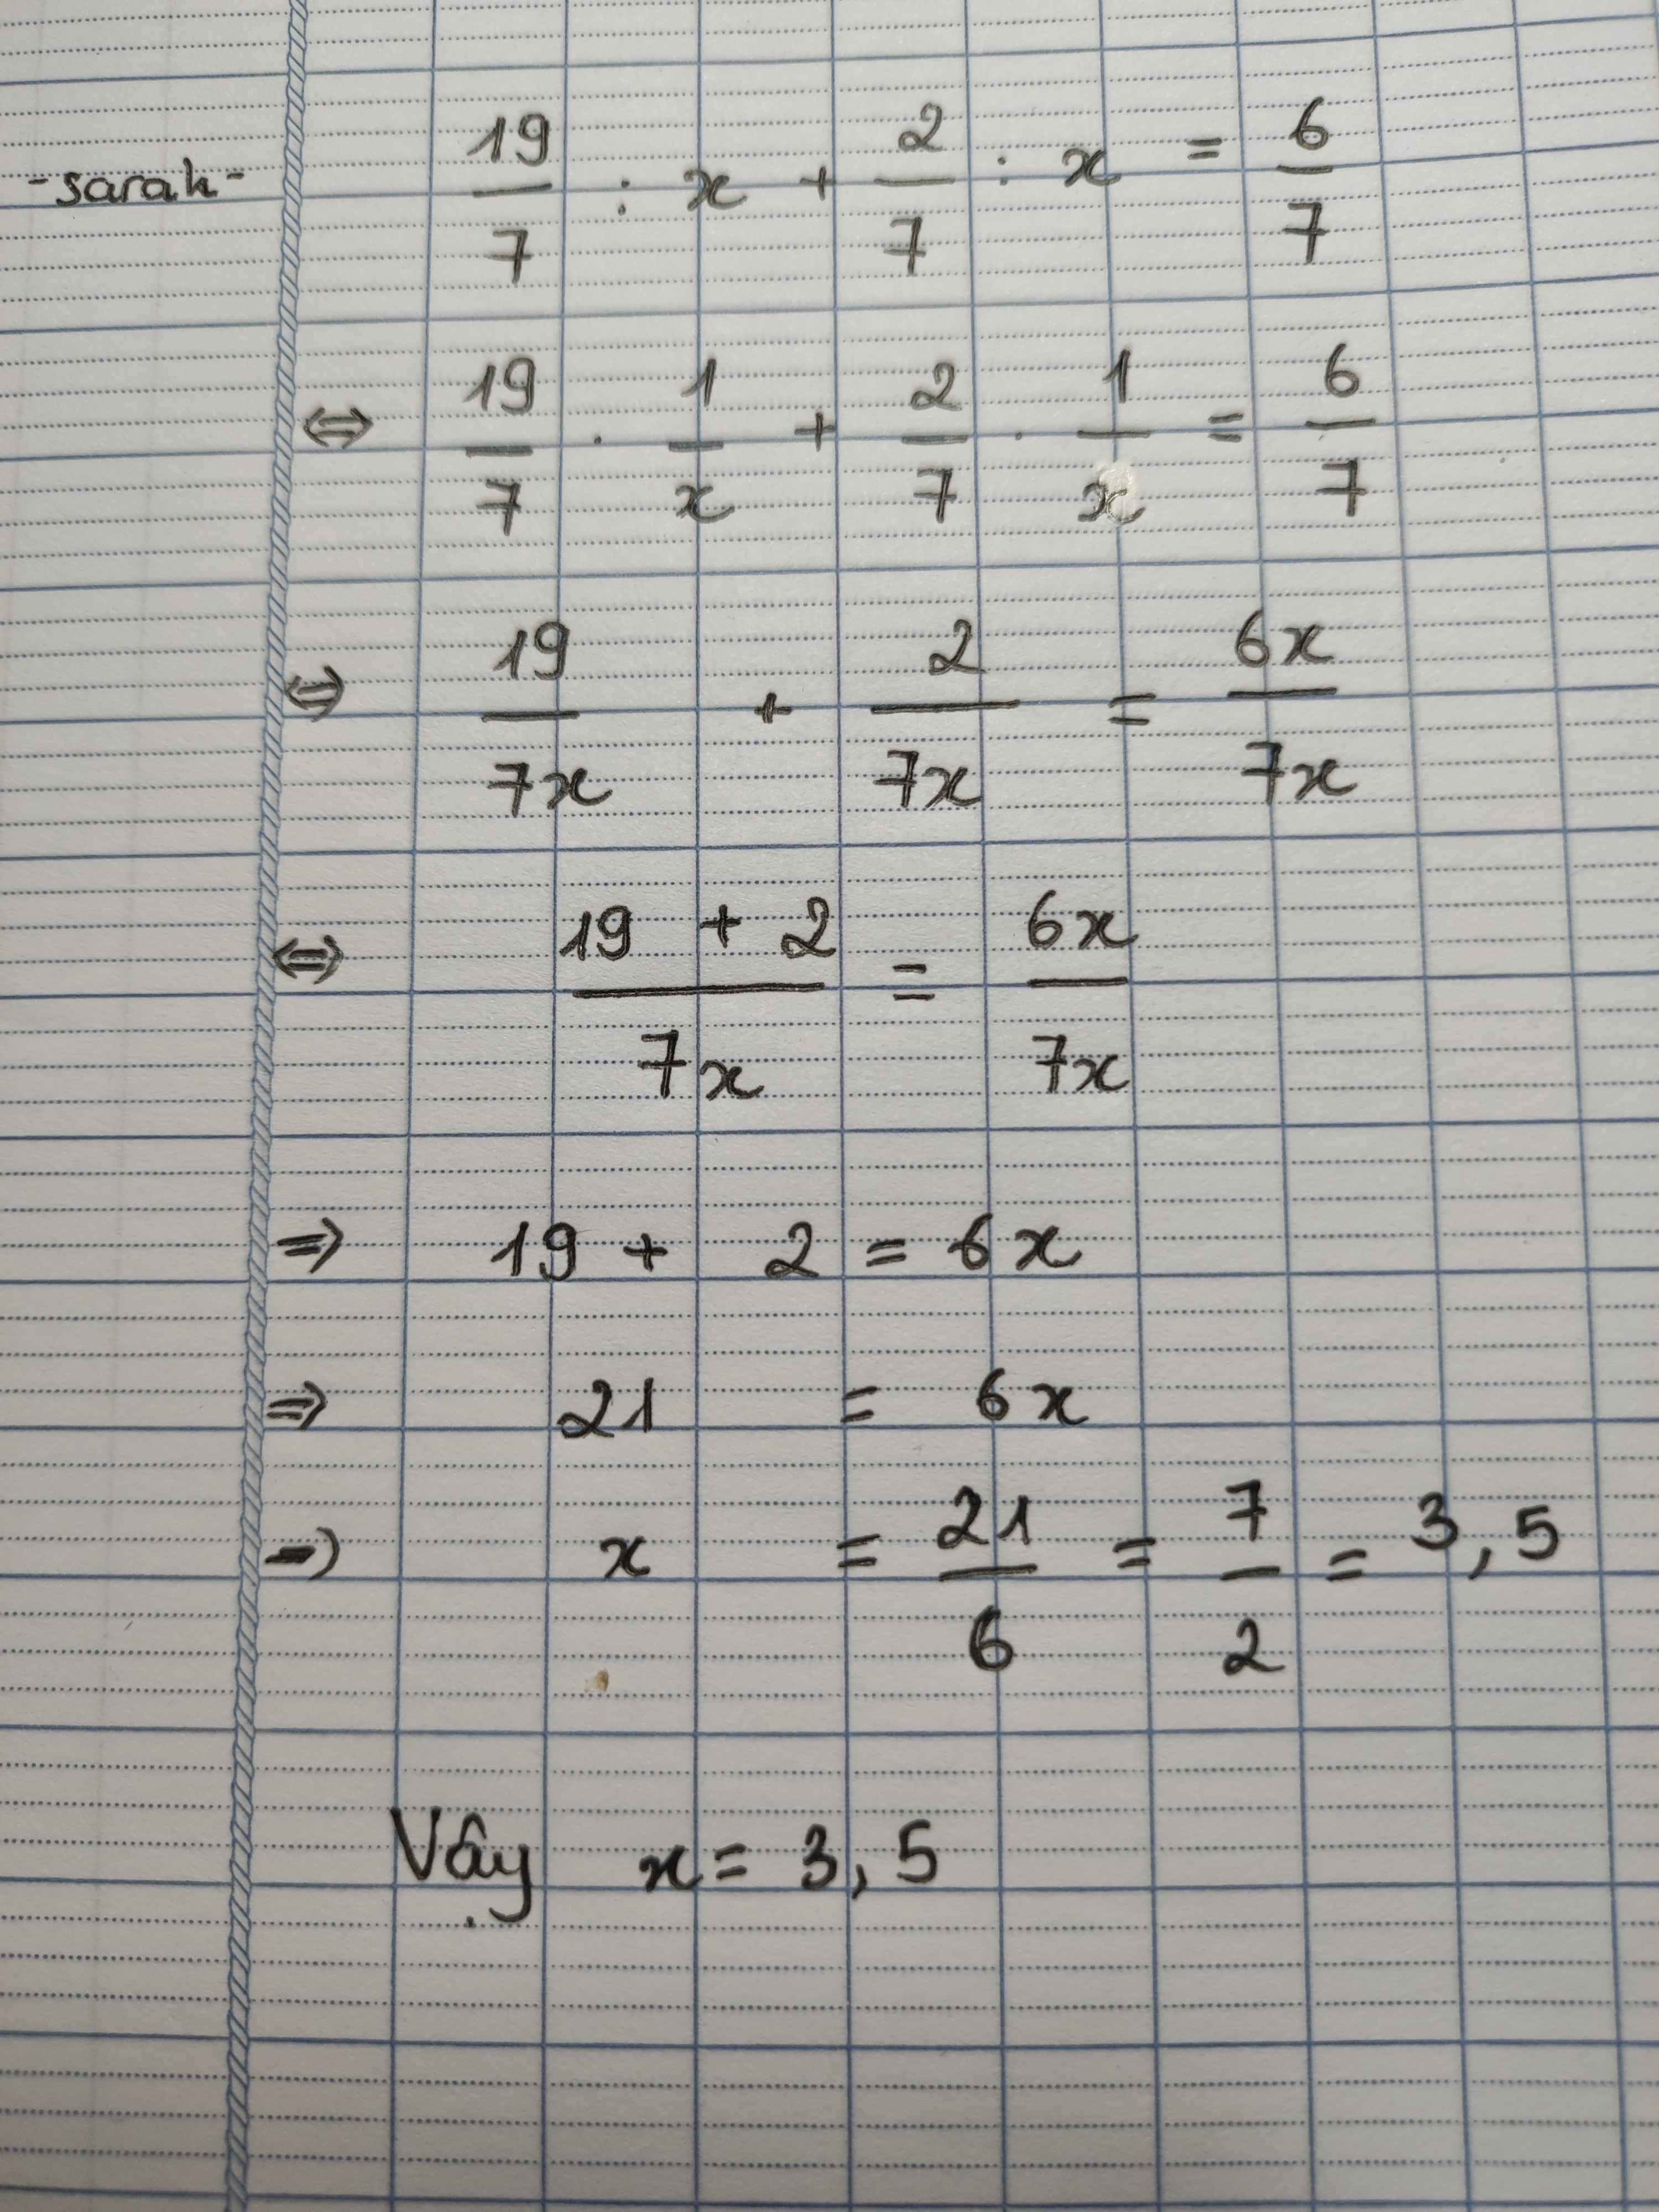 -sarah-
19/7 : x + 2/7 : x = 6/7
⇔ 19/7 . 1/x + 2/7 . 1/x = 6/7
⇔ 19/7x + 2/7x = 6x/7x
⇔ (19 + 2)/7x = 6x/7x
⇒ 19 + 2 = 6x
⇒ 21 = 6x
⇒ x = 21/6 = 7/2 = 3,5
Vậy x = 3,5